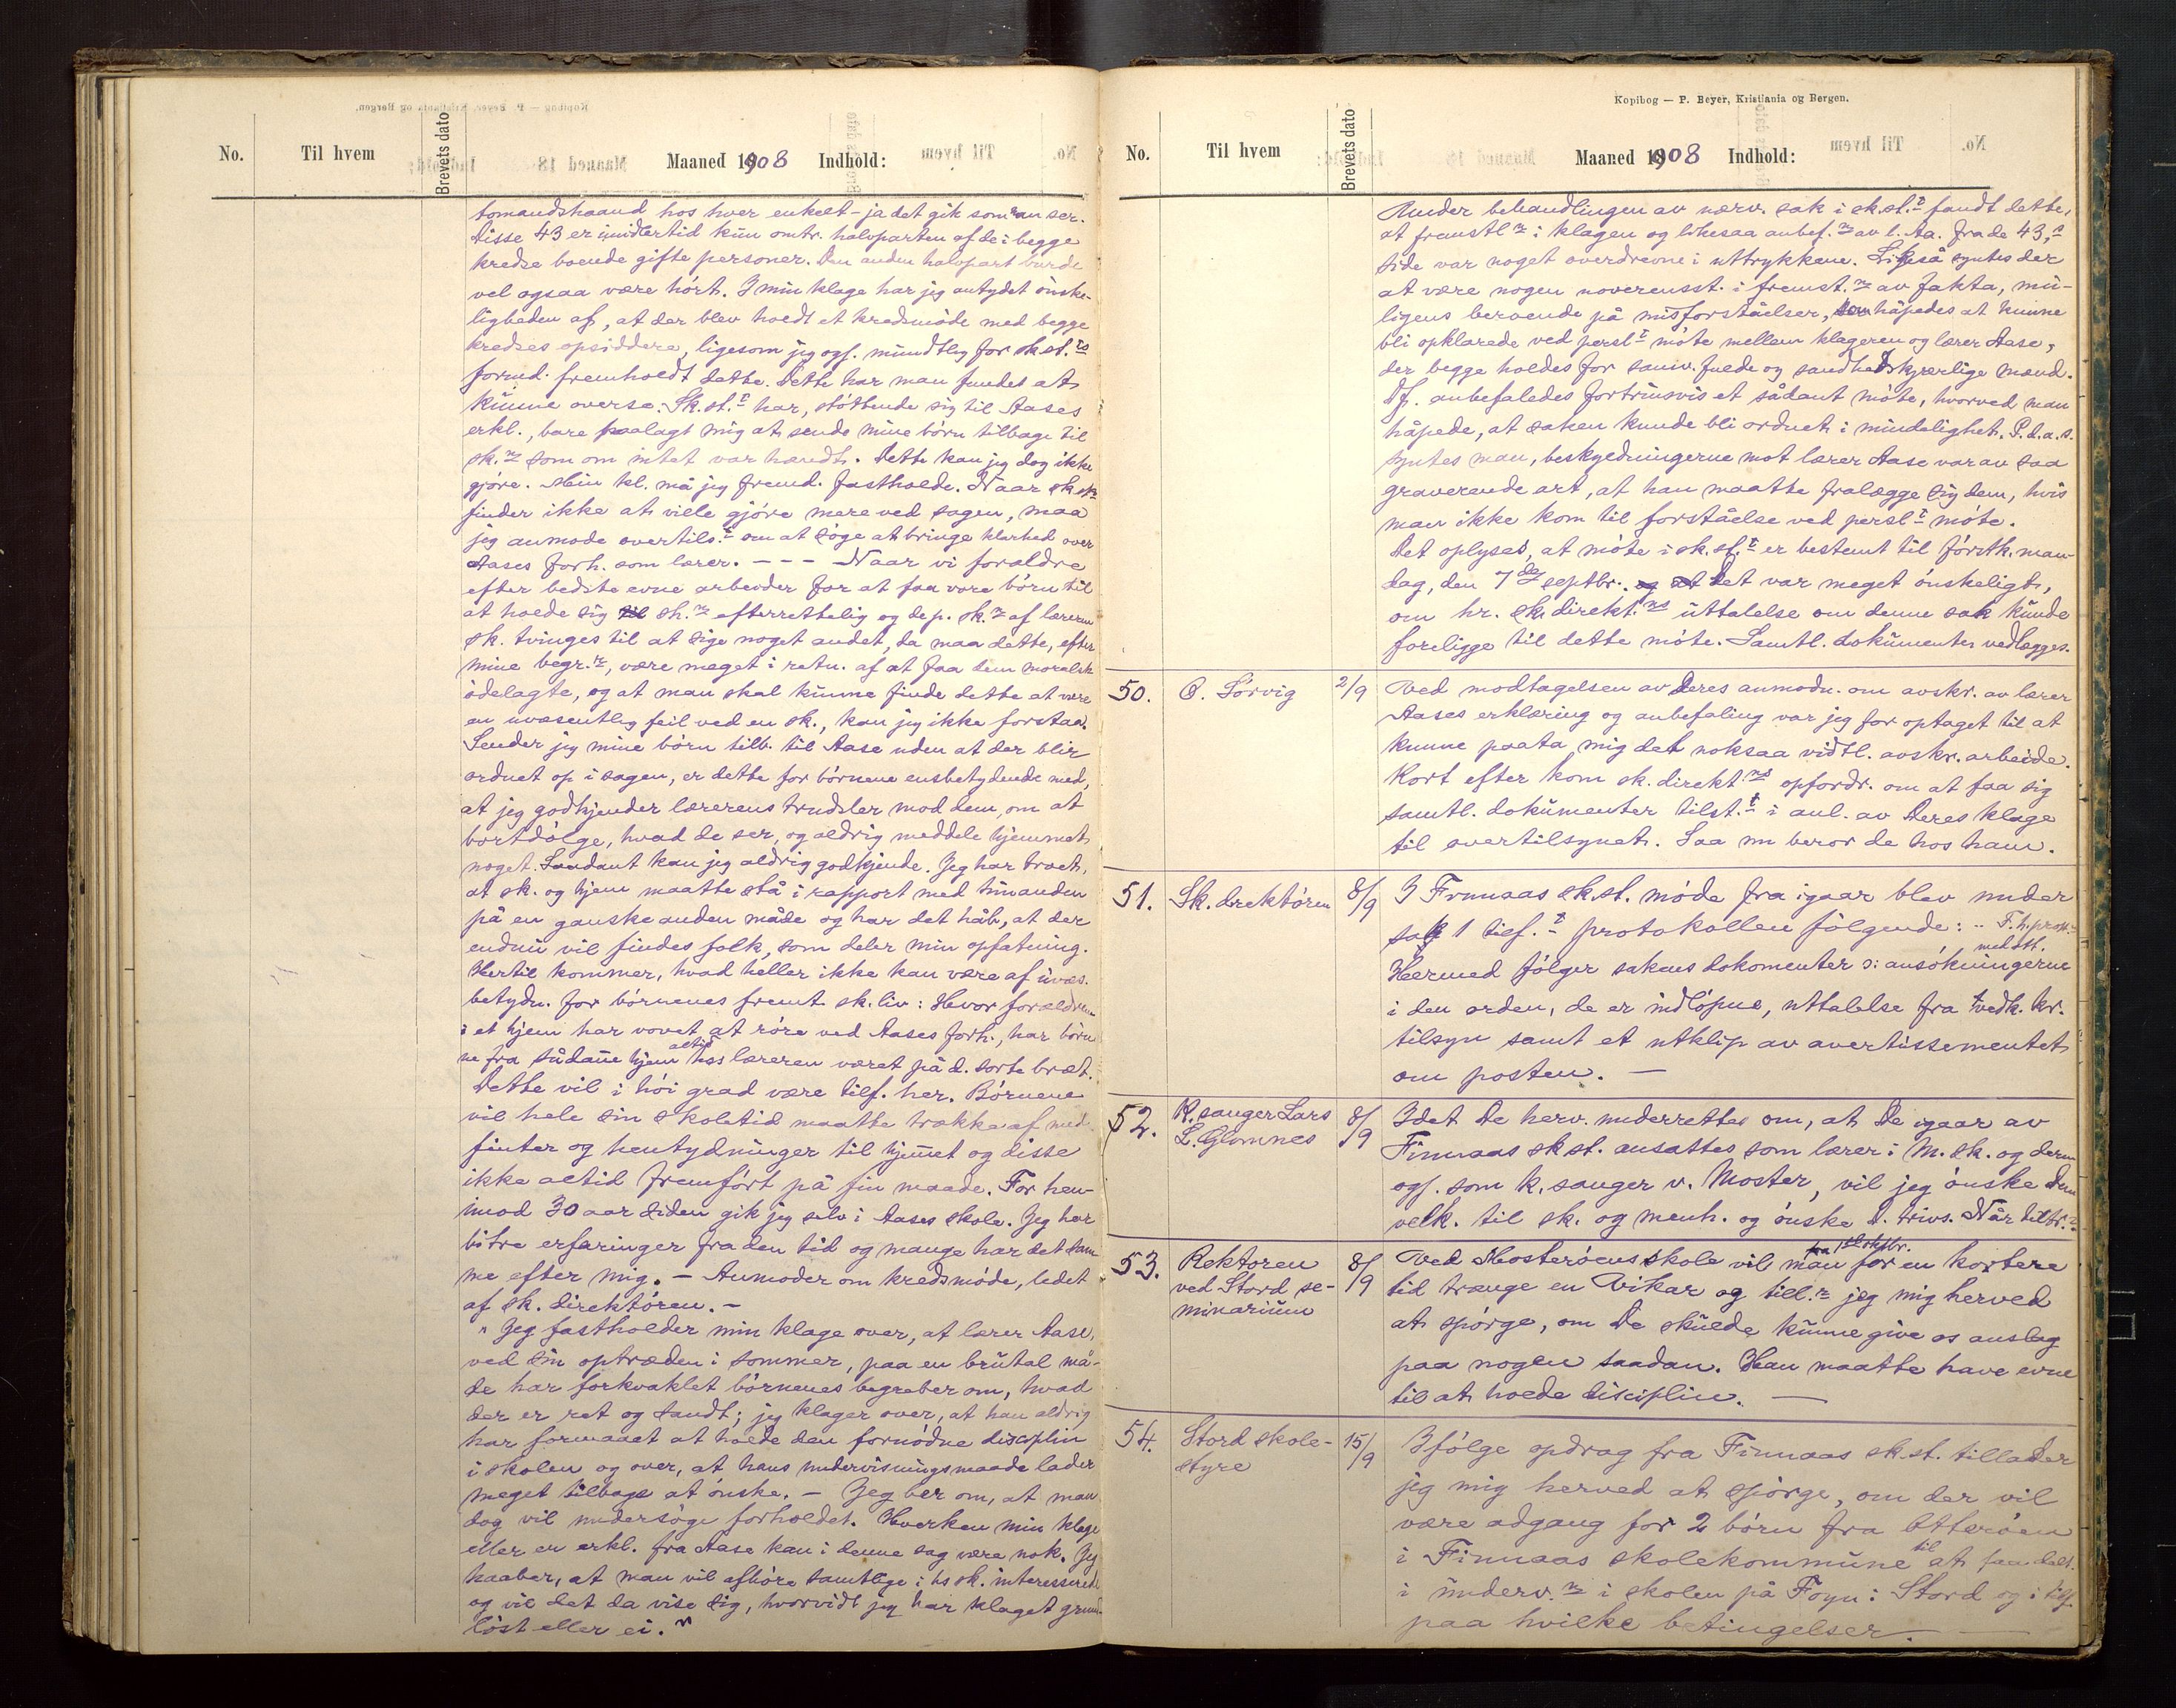 No. Til hvem Brevets dato Maaned 1908 Indhold:
tomandshaand hos hver enkelt - ja det gik som man ser.
Disse 43 er imidlertid kun omtr. halvparten af de i begge
kredse boende gifte personer. Den anden halvpart burde
vel ogsaa være hørt. I min klage har jeg antydet ønske-
ligheden af, at der blev holdt et kredsmøde med begge
kredses opsiddere, ligesom jeg ogs. mundtlig for sk.st.rs
formd. fremholdt dette. Dette har man fundet at
kunne overse. Sk.st.t har, støttende sig til Aases
erkl., bare paalagt mig at sende mine børn tilbage til
sk.n som om intet var hændt. Dette kan jeg dog ikke
gjøre. Min kl. må jeg fremd. fastholde. Naar sk.st.
finder ikke at ville gjøre mere ved sagen, maa
jeg anmode overtils.t om at søge at bringe klarhed over
Aases forh. som lærer. - - - Naar vi forældre
efter bedste evne arbeider for at faa vore børn til
at holde sig til sk.n efterrettelig og de p. sk.n af læreren
sk. tvinges til at sige noget andet, da maa dette, efter
mine begr.r, være meget i retn. af at faa dem moralsk
ødelagte, og at man skal kunne finde dette at være
en uvæsentlig feil ved en sk., kan jeg ikke forstaa.
Sender jeg mine børn tilb. til Aase uden at der blir
ordnet op i sagen, er dette for børnene ensbetydende med,
at jeg godkjender lærerens trudsler mod dem, om at
bortdølge, hvad de ser, og aldrig meddele hjemmet
noget. Saadant kan jeg aldrig godkjende. Jeg har troet,
at sk. og hjem maatte stå i rapport med hinanden
på en ganske anden måde og har det håb, at der
endnu vil findes folk, som deler min opfatning.
Hertil kommer, hvad heller ikke kan være af uvæs.
betydn. for børnenes fremt. sk.liv: Hvor forældrene
i et hjem har vovet at røre ved Aases forh., har børne
ne fra sådane hjem altid hos læreren været på d. sorte bræt.
Dette vil i høi grad være tilf. her. Børnene
vil hele sin skoletid maatte trækkes af med
finter og hentydninger til hjemet og disse
ikke altid fremført på fin maade. For hen-
imod 30 aar siden gik jeg selv i Aases skole. Jeg har
bitre erfaringer fra den tid og mange har det sam
me efter mig. - Anmoder om kredsmøde, ledet
af sk. direktøren. -
" Jeg fastholder min klage over, at lærer Aase,
ved sin optræden i sommer, paa en brutal må-
de har forkvaklet børnenes begreber om, hvad
der er ret og sandt; jeg klager over, at han aldrig
har formaaet at holde den fornødne disciplin
i skolen og over, at hans undervisningsmaade lader
meget tilbage at ønske. - Jeg ber om, at man
dog vil undersøge forholdet. Hverken min klage
eller en erkl. fra Aase kan i denne sag være nok. Jeg
haaber, at man vil afhøre samtlige i hs sk. interesserede
og vil det da vise sig, hvorvidt jeg har klaget grund-
løst eller ei. "
Kopibog — P. Beyer, Kristiania og Bergen.
No. Til hvem Brevets dato Maaned 1908 Indhold:
Under behandlingen av nærv. sak i sk.st.t fandt dette,
at fremstl.n i klagen og likesaa anbef.n av l. Aa. fra de 43,s
side var noget overdrevne i uttrykkene. Likeså syntes der
at være nogen uoverensst. i fremst.n av fakta, mu-
ligens beroende på misforståelser, som håpedes at kunne
bli opklarede ved persl.t møte mellem klageren og lærer Aase,
der begge holdes for samv.fulde og sandhedskjærlige mænd.
Df. anbefaledes fortrinsvis et sådant møte, hvorved man
håpede, at saken kunde bli ordnet i mindelighet. P.d.a.s.
syntes man, beskyldningerne mot lærer Aase var av saa
graverende art, at han maatte fralægge sig dem, hvis
man ikke kom til forståelse ved persl.t møte.
Det oplyses, at møte i sk.st.t er bestemt til førstk. man-
dag, den 7de septbr. og at Det var meget ønskeligt,
om hr. sk.direkt.ns uttalelse om denne sak kunde
foreligge til dette møte. Samtl. dokumenter vedlægges.
50. O. Sørvig 2/9 Ved modtagelsen av Deres anmodn. om avskr. av lærer
Aases erklæring og anbefaling var jeg for optaget til at
kunne paata mig det noksaa vidtl. avskr. arbeide.
Kort efter kom sk.direkt.ns opfordr. om at faa sig
samtl. dokumenter tilst.t i anl. av Deres klage
til overtilsynet. Saa nu beror de hos ham.
51. Sk. direktøren 8/9 I Finnaas sk.st. møde fra igaar blev under
sak 1 tilf.t protokollen følgende: "
Hermed følger sakens dokomenter ɔ: ansøkningerne med att.
i den orden, de er indløpne, uttalelse fra vedk. kr.
tilsyn samt et utklip av avertissementet
om posten. —
52. K. sanger Lars
L. Glomnes 8/9 Idet De herv. underrettes om, at De igaar av
Finnaas sk.st. ansattes som lærer i M. sk. og derm
ogs. som k. sanger v. Moster, vil jeg ønske Dem
velk. til sk. og menh. og ønske d. trivs. Når tiltr.?
53. Rektoren
ved Stord se-
minarium 8/9 Ved Mosterøens skole vil man fra 1ste oktbr. for en kortere
tid trænge en Vikar og till.r jeg mig herved
at spørge, om De skulde kunne give os anslag
paa nogen saadan. Han maatte have evne
til at holde disciplin. —
54. Stord skole-
styre 15/9 Ifølge opdrag fra Finnaas sk.st. tillader
jeg mig herved at spørge, om der vil
være adgang for 2 børn fra Otterøen
i Finnaas skolekommune til at faa delt.
i underv.n i skolen på Føyn i Stord og i tilf.
paa hvilke betingelser. —